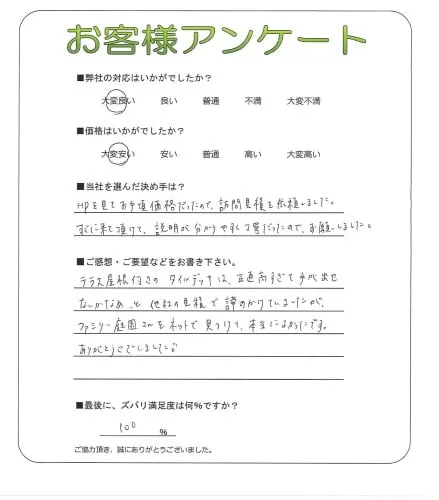 お客様アンケート
■弊社の対応はいかがでしたか？
大変良い 良い 普通 不満 大変不満
■価格はいかがでしたか？
大変安い 安い 普通 高い 大変高い
■当社を選んだ決め手は？
HPを見てお手頃価格だったので、訪問見積を依頼しました。
すぐに来て頂けて、説明が分かりやすく丁寧だったので、お願いしました。
■ご感想・ご要望などをお書き下さい。
テラス屋根付きのタイルデッキは、正直高すぎて手が出せ
ないかなぁ、と他社の見積で諦めかけていましたが、
ファミリー庭園さんをネットで見つけて、本当によかったです。
ありがとうございました。
■最後に、ズバリ満足度は何％ですか？
100 ％
ご協力頂き、誠にありがとうございました。